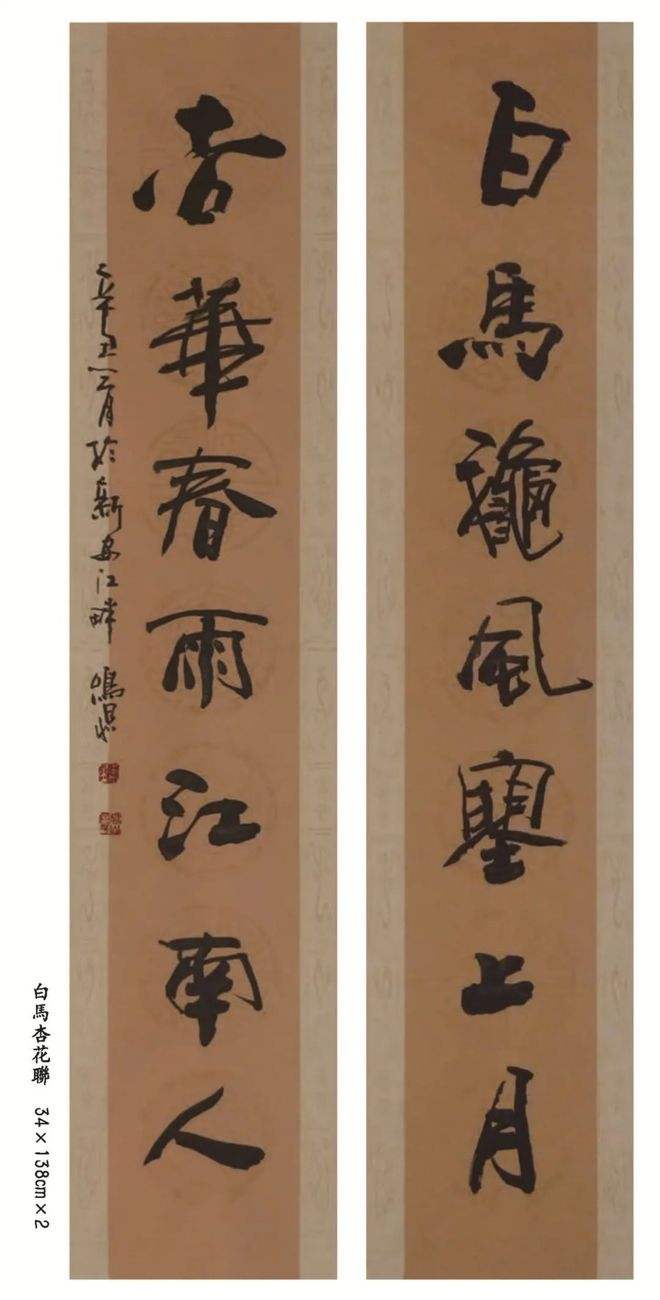 白馬穐風塞上月
杏華春雨江南人
辛丑三月於新安江畔 鳴
白馬杏花聯 34×138cm×2